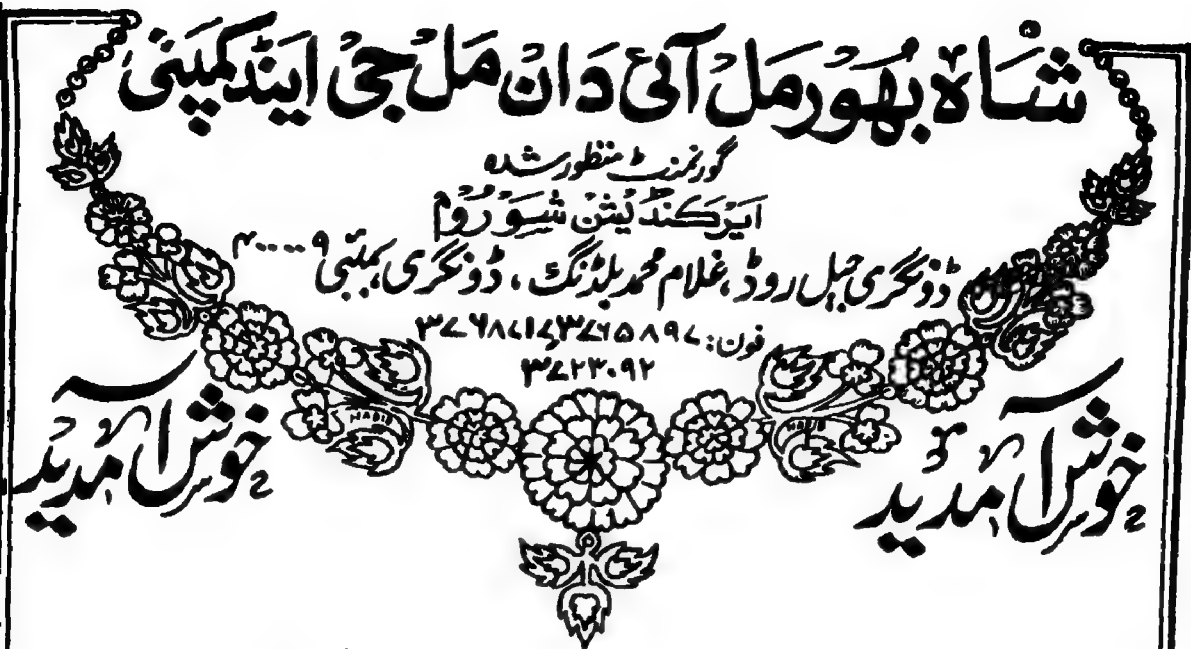 شاہ بھورمل آئی دان مل جی اینڈ کمپنی
گورنمنٹ منظور شدہ
ایئرکنڈیشن شوروم
ڈونگری جیل روڈ، غلام محمد بلڈنگ، ڈونگری، بمبئی ۴۰۰۰۰۹
فون: ۳۷۶۵۸۹۷، ۳۷۶۸۷۱۷
۳۷۲۳۰۹۲
خوش آمدید
خوش آمدید
HABIB
HABIB